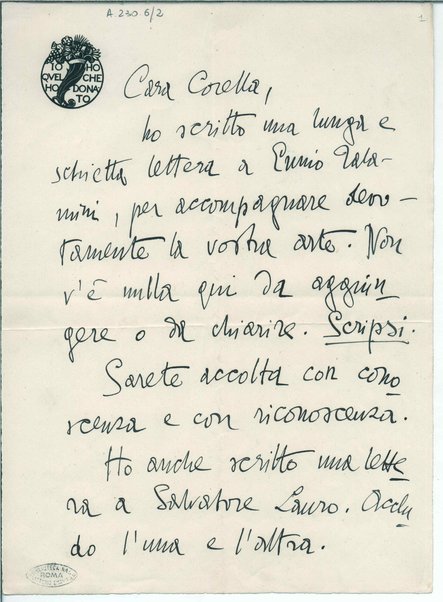 A. 230 6/2
1
IO HO
QVEL CHE
HO DONA
TO
Cara Corella,
ho scritto una lunga e
schietta lettera a Ennio Tala-
mini, per accompagnare devo-
tamente la vostra arte. Non
v'è nulla qui da aggiun
gere o da chiarire. Scripsi.
Sarete accolta con cono
scenza e con riconoscenza.
Ho anche scritto una lette
ra a Salvatore Lauro. Acclu
do l'una e l'altra.
ROMA